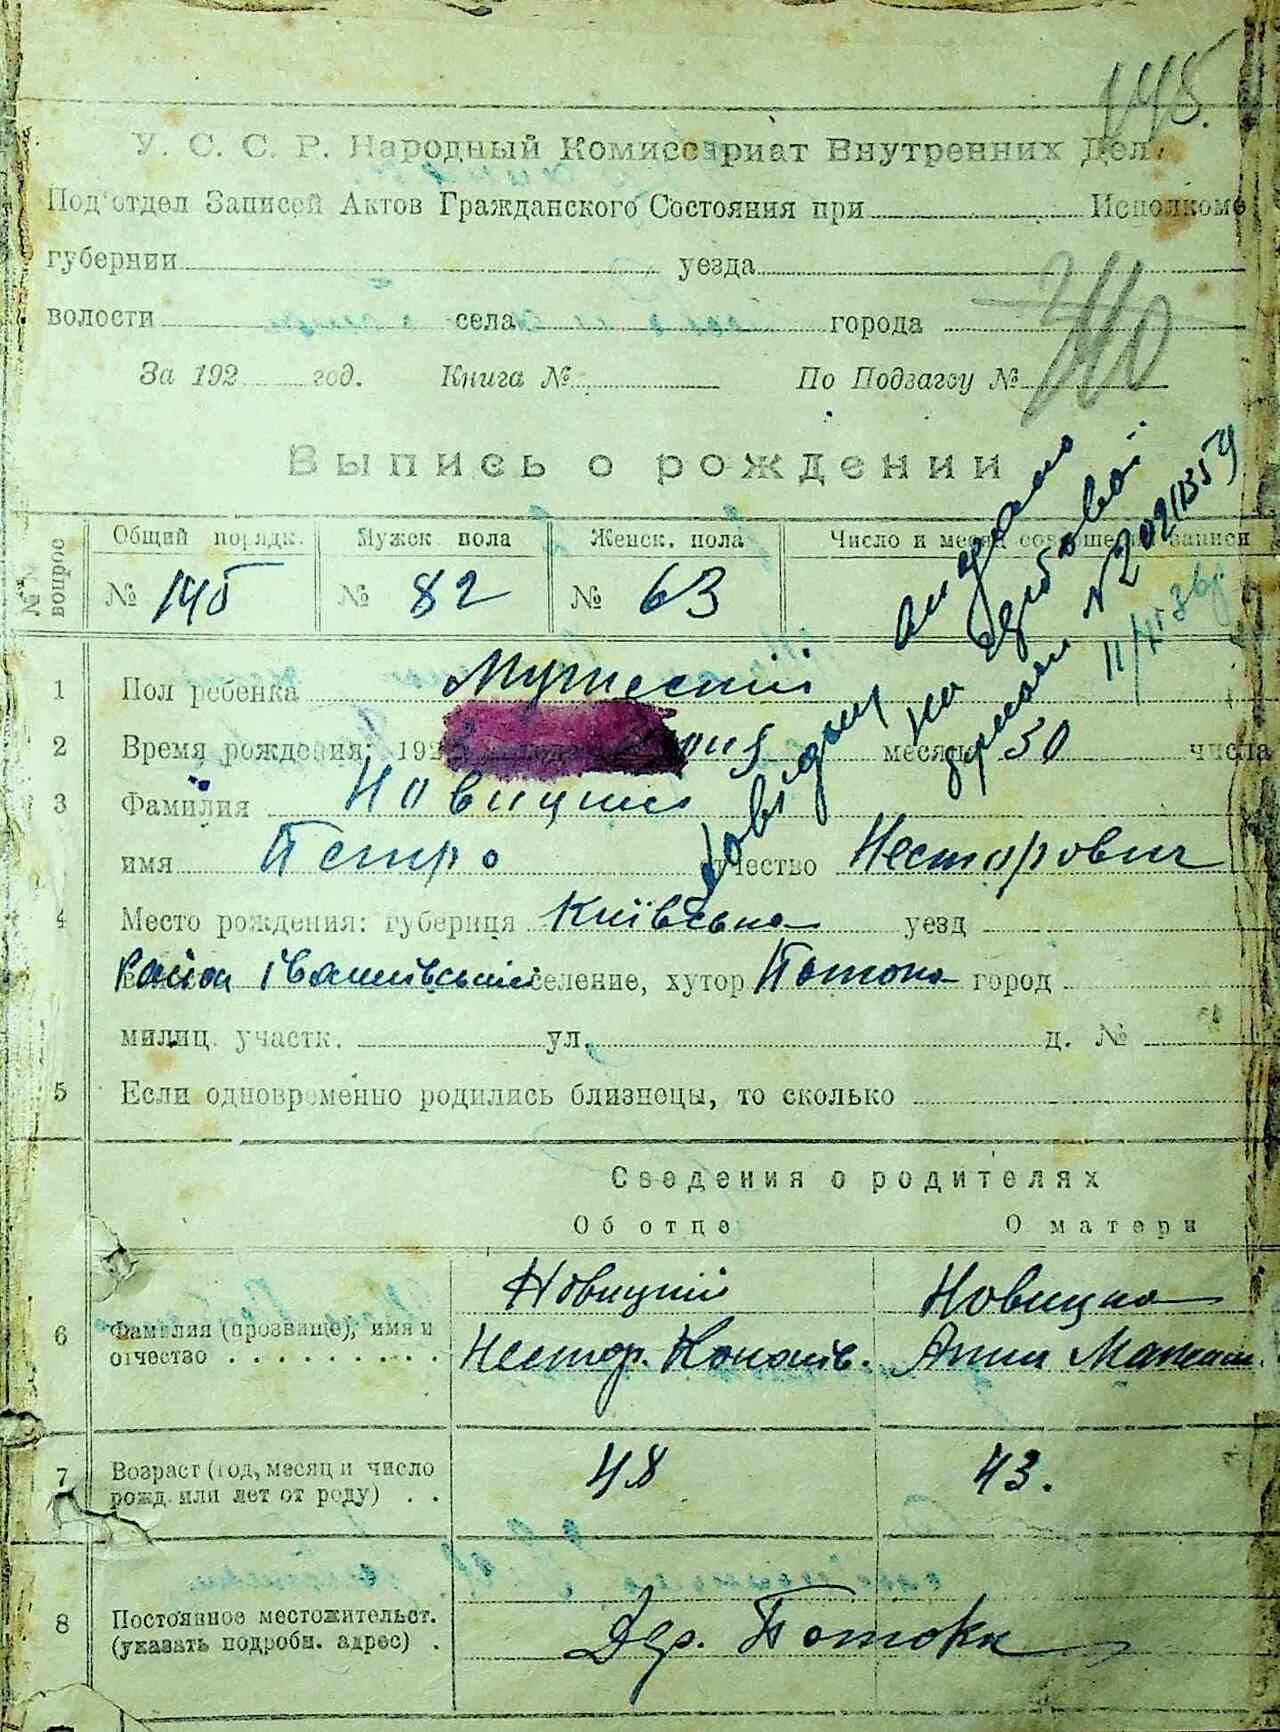 145.
У. С. С. Р. Народный Комиссариат Внутренних Дел.
Под'отдел Записей Актов Гражданского Состояния при Исполкоме
губернии уезда
волости села города
310
За 192 год. Книга № По Подзагсу №
Выпись о рождении
№№ вопрос
Общий порядк. Мужск пола Женск. пола Число и месяц совершения записи
№ 145 № 82 № 63
на гербовой
бумаги № 202113
11/VI 36р
1 Пол ребенка Мужеский
2 Время рождения: 192 месяц 30 числа
3 Фамилия Новицкий
имя Петро отчество Несторович
4 Место рождения: губерния Київська уезд
Район Іванківський селение, хутор Потоки город
милиц. участк. ул. д. №
5 Если одновременно родились близнецы, то сколько
Сведения о родителях
Об отце О матери
6 Фамилия (прозвище), имя и отчество Новицкий Нестор. Новицка Анна
7 Возраст (год, месяц и число рожд. или лет от роду) 48 43.
8 Постоянное местожительст. (указать подробн. адрес) Дер. Потоки